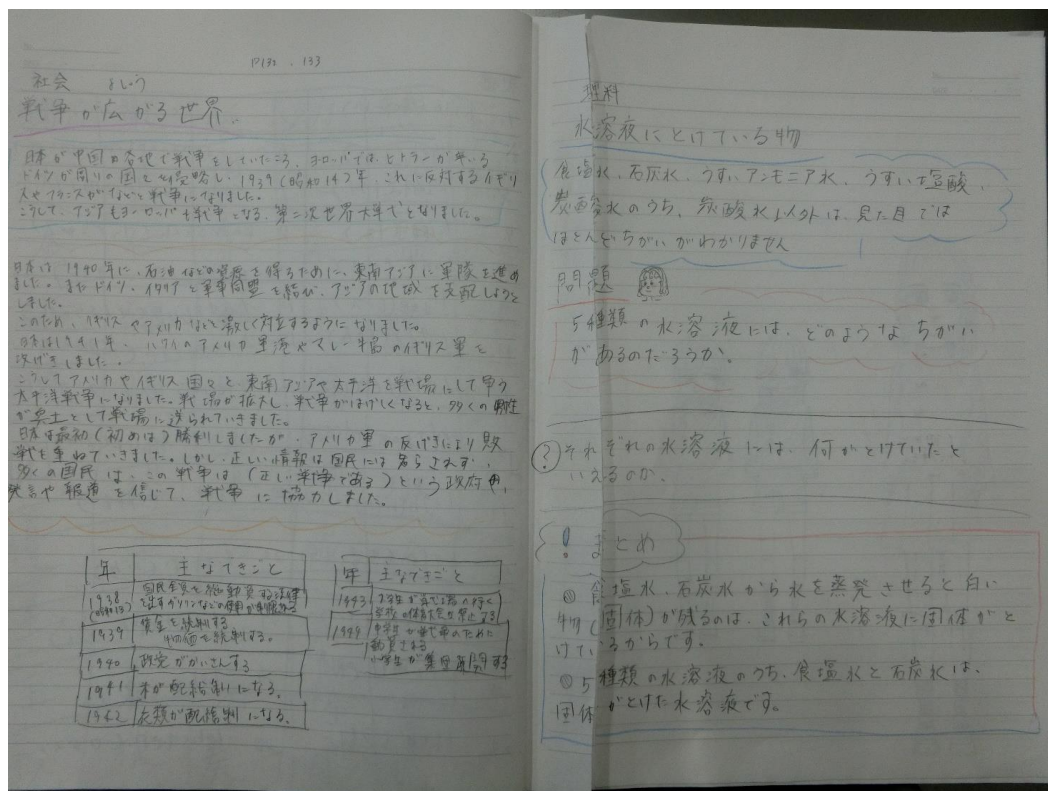 P132.133
社会 よしゅう
戦争が広がる世界.
日本が中国の各地で戦争をしていたころ、ヨーロッパでは、ヒトラーが率いる
ドイツが周りの国々を侵略し、1939(昭和14)年、これに反対するイギリ
スやフランスがなどと戦争になりました。
こうして、アジアもヨーロッパも戦争となる、第二次世界大戦となりました。
日本は、1940年に、石油などの資源を得るために、東南アジアに軍隊を進め
ました。またドイツ、イタリアと軍事同盟を結び、アジアの地域を支配しようと
しました。
このため、イギリスやアメリカなどと激しく対立するようになりました。
日本は1941年、ハワイのアメリカ軍港やマレー半島のイギリス軍を
攻げきしました。
こうしてアメリカやイギリス国々と東南アジアや太平洋を戦場にして争う
太平洋戦争になりました。戦場が拡大し、戦争がはげしくなると、多くの男性
が兵士として戦場に送られていきました。
日本は最初(初めは)勝利しましたが、アメリカ軍の反げきにより敗
戦を重ねていきました。しかし、正しい情報は国民には知らされず、
多くの国民は、この戦争は(正しい戦争である)という政府や、
発言や報道を信じて、戦争に協力しました。
年 主なできごと
1938(昭和13) 国民全員を総動員する法律
を出すガソリンなどの使用が制限
1939 賃金を統制する
物価を統制する。
1940 政党がかいさんする
1941 米が配給制になる。
1942 衣類が配給制になる。
年 主なできごと
1943 大学生が戦場へ行く
学校の体育大会が禁止する
1944 中学生が
動員される
小学生が集団疎開する
理科
水溶液にとけている物
食塩水、石灰水、うすいアンモニア水、うすい塩酸、
炭酸水のうち、炭酸水以外は、見た目では
ほとんどちがいがわかりません
問題
5種類の水溶液には、どのようなちがい
があるのだろうか。
? それぞれの水溶液には、何がとけていたと
いえるのか、
! まとめ
◎食塩水、石灰水から水を蒸発させると白い
物(固体)が残るのは、これらの水溶液に固体がと
けているからです。
◎5種類の水溶液のうち、食塩水と石灰水は、
固体がとけた水溶液です。